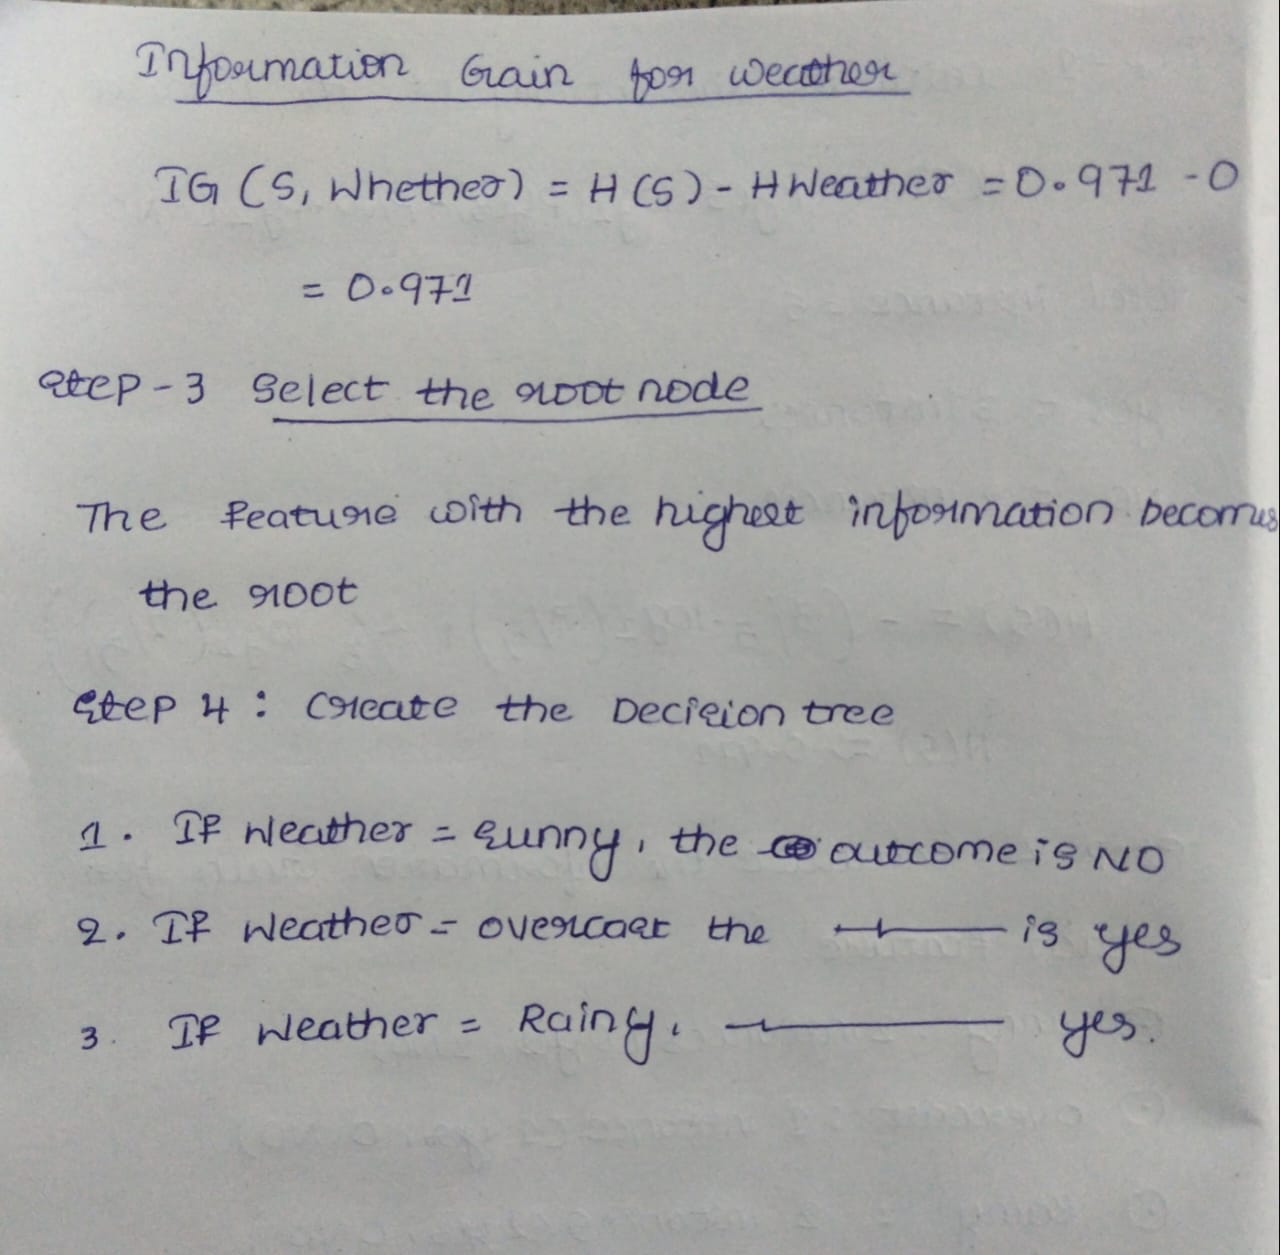 Information Gain for weather
IG (S, Whether) = H (S) - H Weather = 0.971 - 0
= 0.971
Step - 3 Select the root node
The feature with the highest information becomes
the root
Step 4 : Create the Decision tree
1. If Weather = Sunny, the outcome is NO
2. If Weather = overcast the —"— is yes
3. If Weather = Rainy, —"— yes.